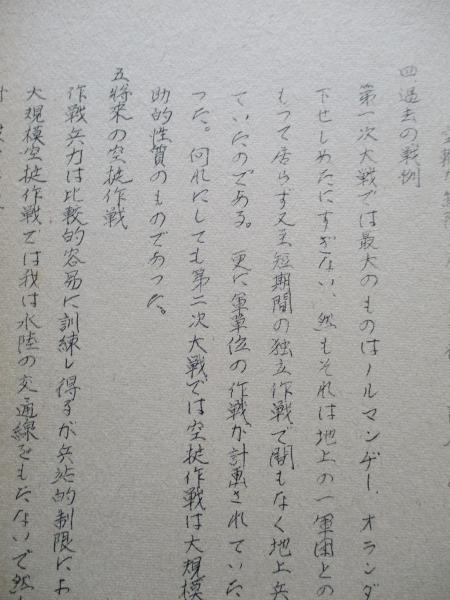 四過去の戦例
第一次大戦では最大のものはノルマンヂー、オランダ
下せしめたにすぎない、然もそれは地上の一軍団との
もつて居らず又至短期間の独立作戦で間もなく地上兵
ていたのである。更に軍単位の作戦が計画されていた
つた。何れにしても第二次大戦では空挺作戦は大規模
助的性質のものであつた。
五将来の空挺作戦
作戦兵力は比較的容易に訓練し得るが兵站的制限にお
大規模空挺作戦では我は水陸の交通線をもたないで然